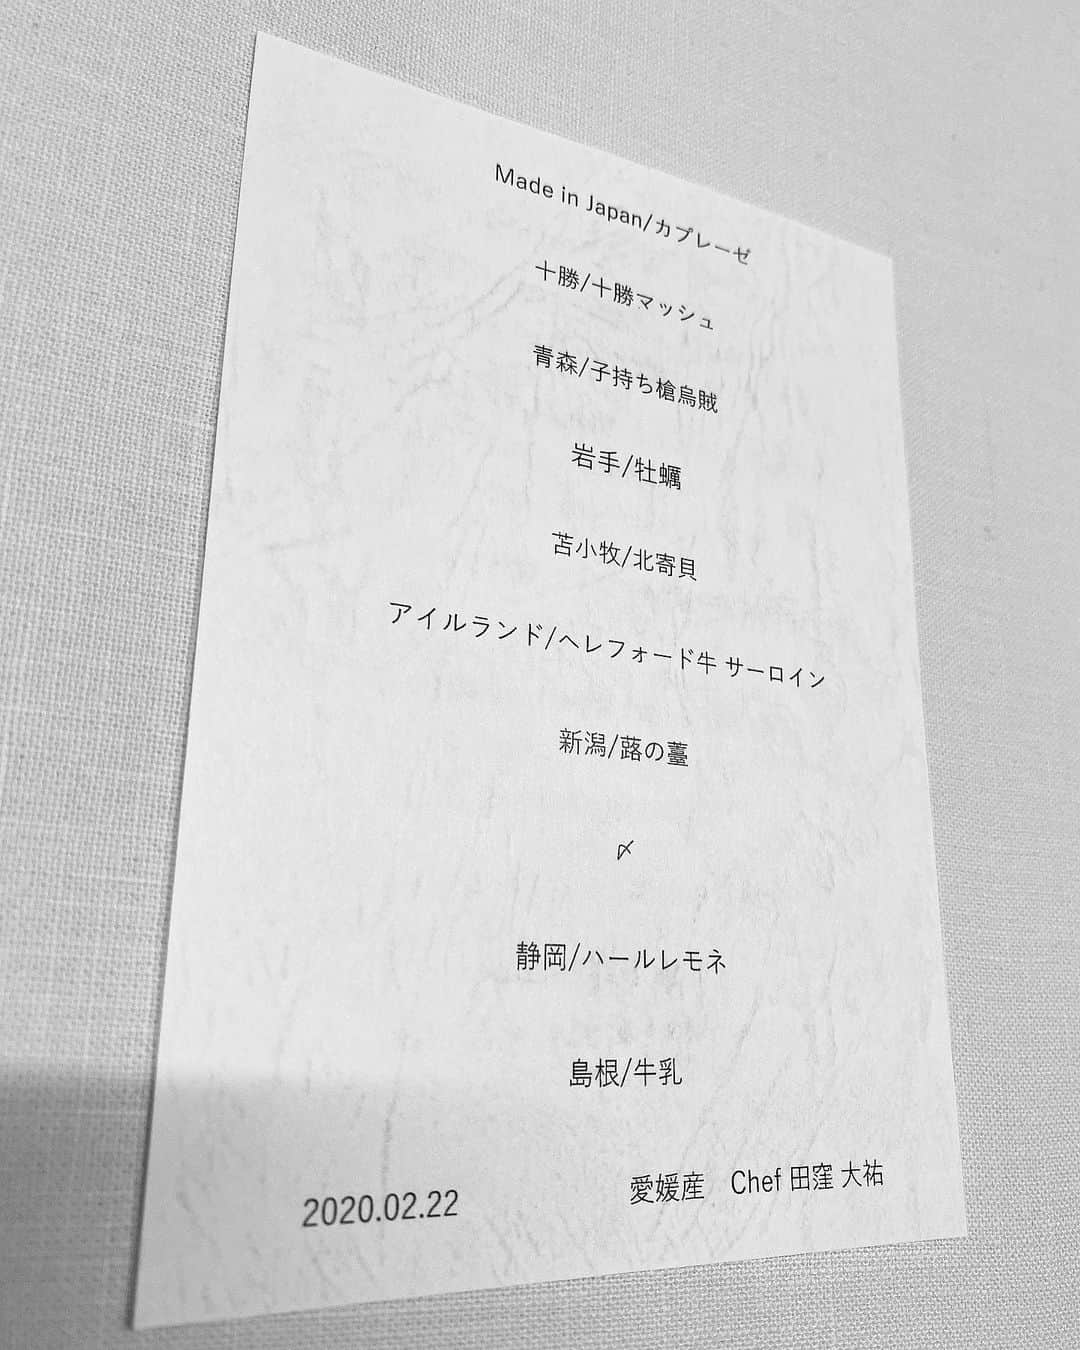 Made in Japan/カプレーゼ
十勝/十勝マッシュ
青森/子持ち槍烏賊
岩手/牡蠣
苫小牧/北寄貝
アイルランド/ヘレフォード牛 サーロイン
新潟/蕗の薹
〆
静岡/ハールレモネ
島根/牛乳
2020.02.22
愛媛産　Chef 田窪 大祐